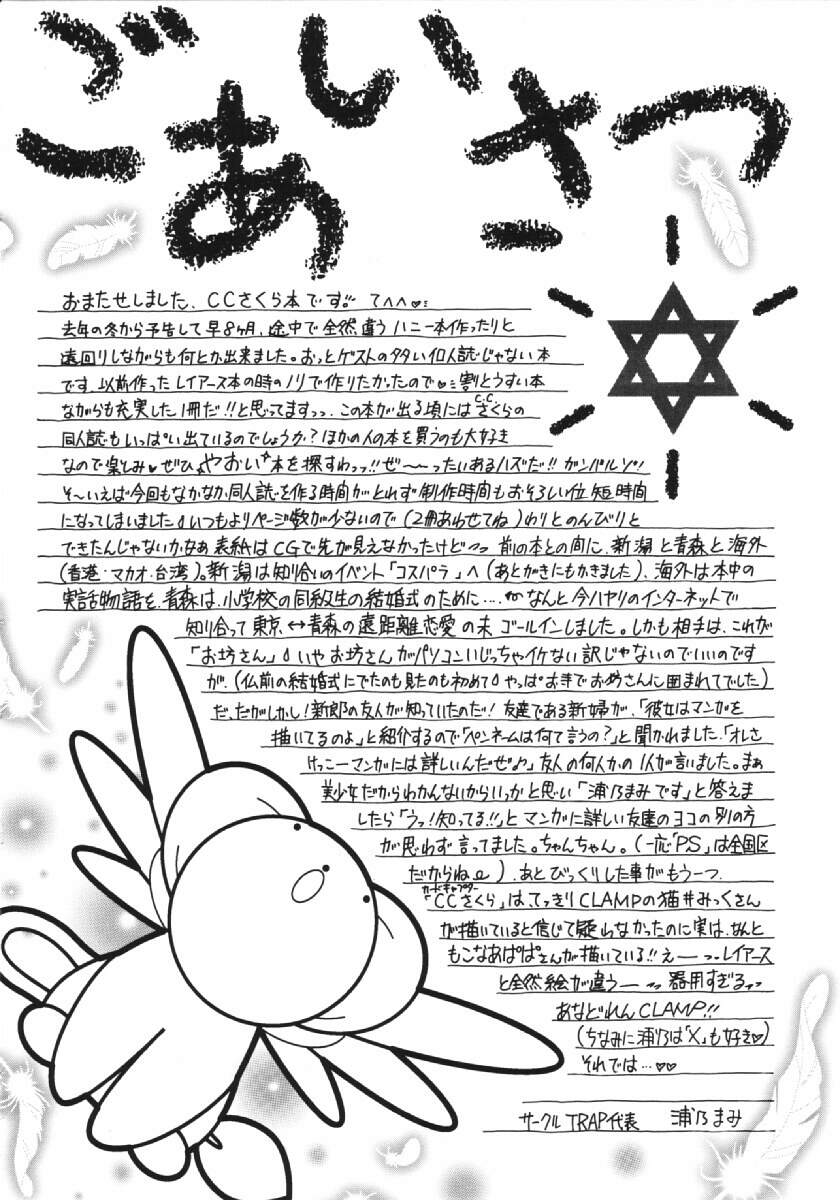 ごあいさつ
おまたせしました、CCさくら本です!! て^^♡
去年の冬から予告して早8ヶ月、途中で全然違うハニー本作ったりと
遠回りしながらも何とか出来ました。おっとゲストの多い個人誌じゃない本
です。以前作ったレイアース本の時のノリで作りたかったので♡割とうすい本
ながらも充実した1冊だ!!と思ってますっっ、この本が出る頃にはC.C.さくらの
同人誌もいっぱい出ているのでしょうか?ほかの人の本を買うのも大好き
なので楽しみ♥ぜひやおい本を探すわっっ!!ぜ〜〜ったいあるハズだ!!ガンバルゾ!
そ〜いえば今回もなかなか同人誌を作る時間がとれず制作時間もおそろしい位短時間
になってしまいました いつもよりページ数が少ないので(2冊あわせてね)わりとのんびりと
できたんじゃないかなぁ 表紙はCGで先が見えなかったけど〜っ 前の本との間に、新潟と青森と海外
(香港・マカオ・台湾)。新潟は知り合いのイベント「コスパラ」へ(あとがきにもかきました)、海外は本中の
実話物語を、青森は、小学校の同級生の結婚式のために…。なんと今ハヤリのインターネットで
知り合って東京↔青森の遠距離恋愛の末 ゴールインしました。しかも相手は、これが
「お坊さん」いやお坊さんがパソコンいじっちゃイケない訳じゃないのでいいのです
が、(仏前の結婚式にでたのも見たのも初めて やっぱお寺でお坊さんに囲まれてでした)
だ、だがしかし!新郎の友人が知っていたのだ!友達である新婦が、「彼女はマンガを
描いてるのよ」と紹介するので「ペンネームは何て言うの?」と聞かれました。「オレさ
けっこーマンガには詳しいんだぜ♪」友人の何人かの1人が言いました。まぁ
美少女だからわかんないからいっかと思い「浦乃まみです」と答えま
したら「うっ!知ってる!!」とマンガに詳しい友達のヨコの別の方
が思わず言ってました。ちゃんちゃん。(一応「PS」は全国区
だからね)、あとびっくりした事がもう一つ。
「CCさくら」は、てっきりCLAMPの猫井みっくさん
カードキャプター
が描いていると信じて疑わなかったのに実は、なんと
もこなあぱぱさんが描いている!!えー〜レイアース
と全然絵が違うー〜っ 器用すぎるっっ
あなどれんCLAMP!!
(ちなみに浦乃は「X」も好き♡)
それでは…♡♡
サークルTRAP代表 浦乃まみ